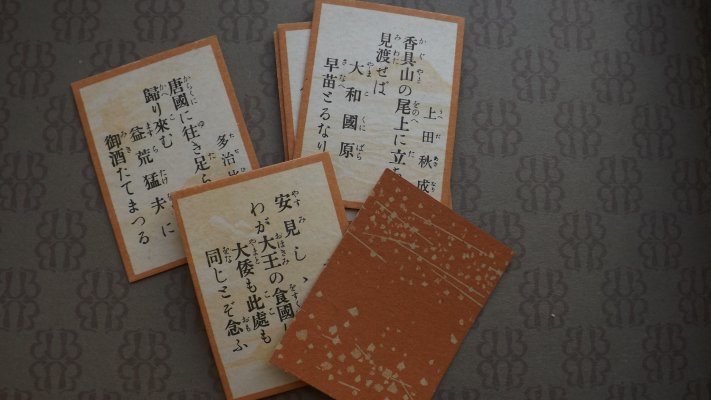 上田秋成
香具山の尾上に立
見渡せば
大和國原
早苗とるなり
多治
唐國に往き足ら
歸り來む
益荒猛夫に
御酒たてまつる
安見しゝ
わが大王の食國
大倭も此處も
同じとぞ念ふ